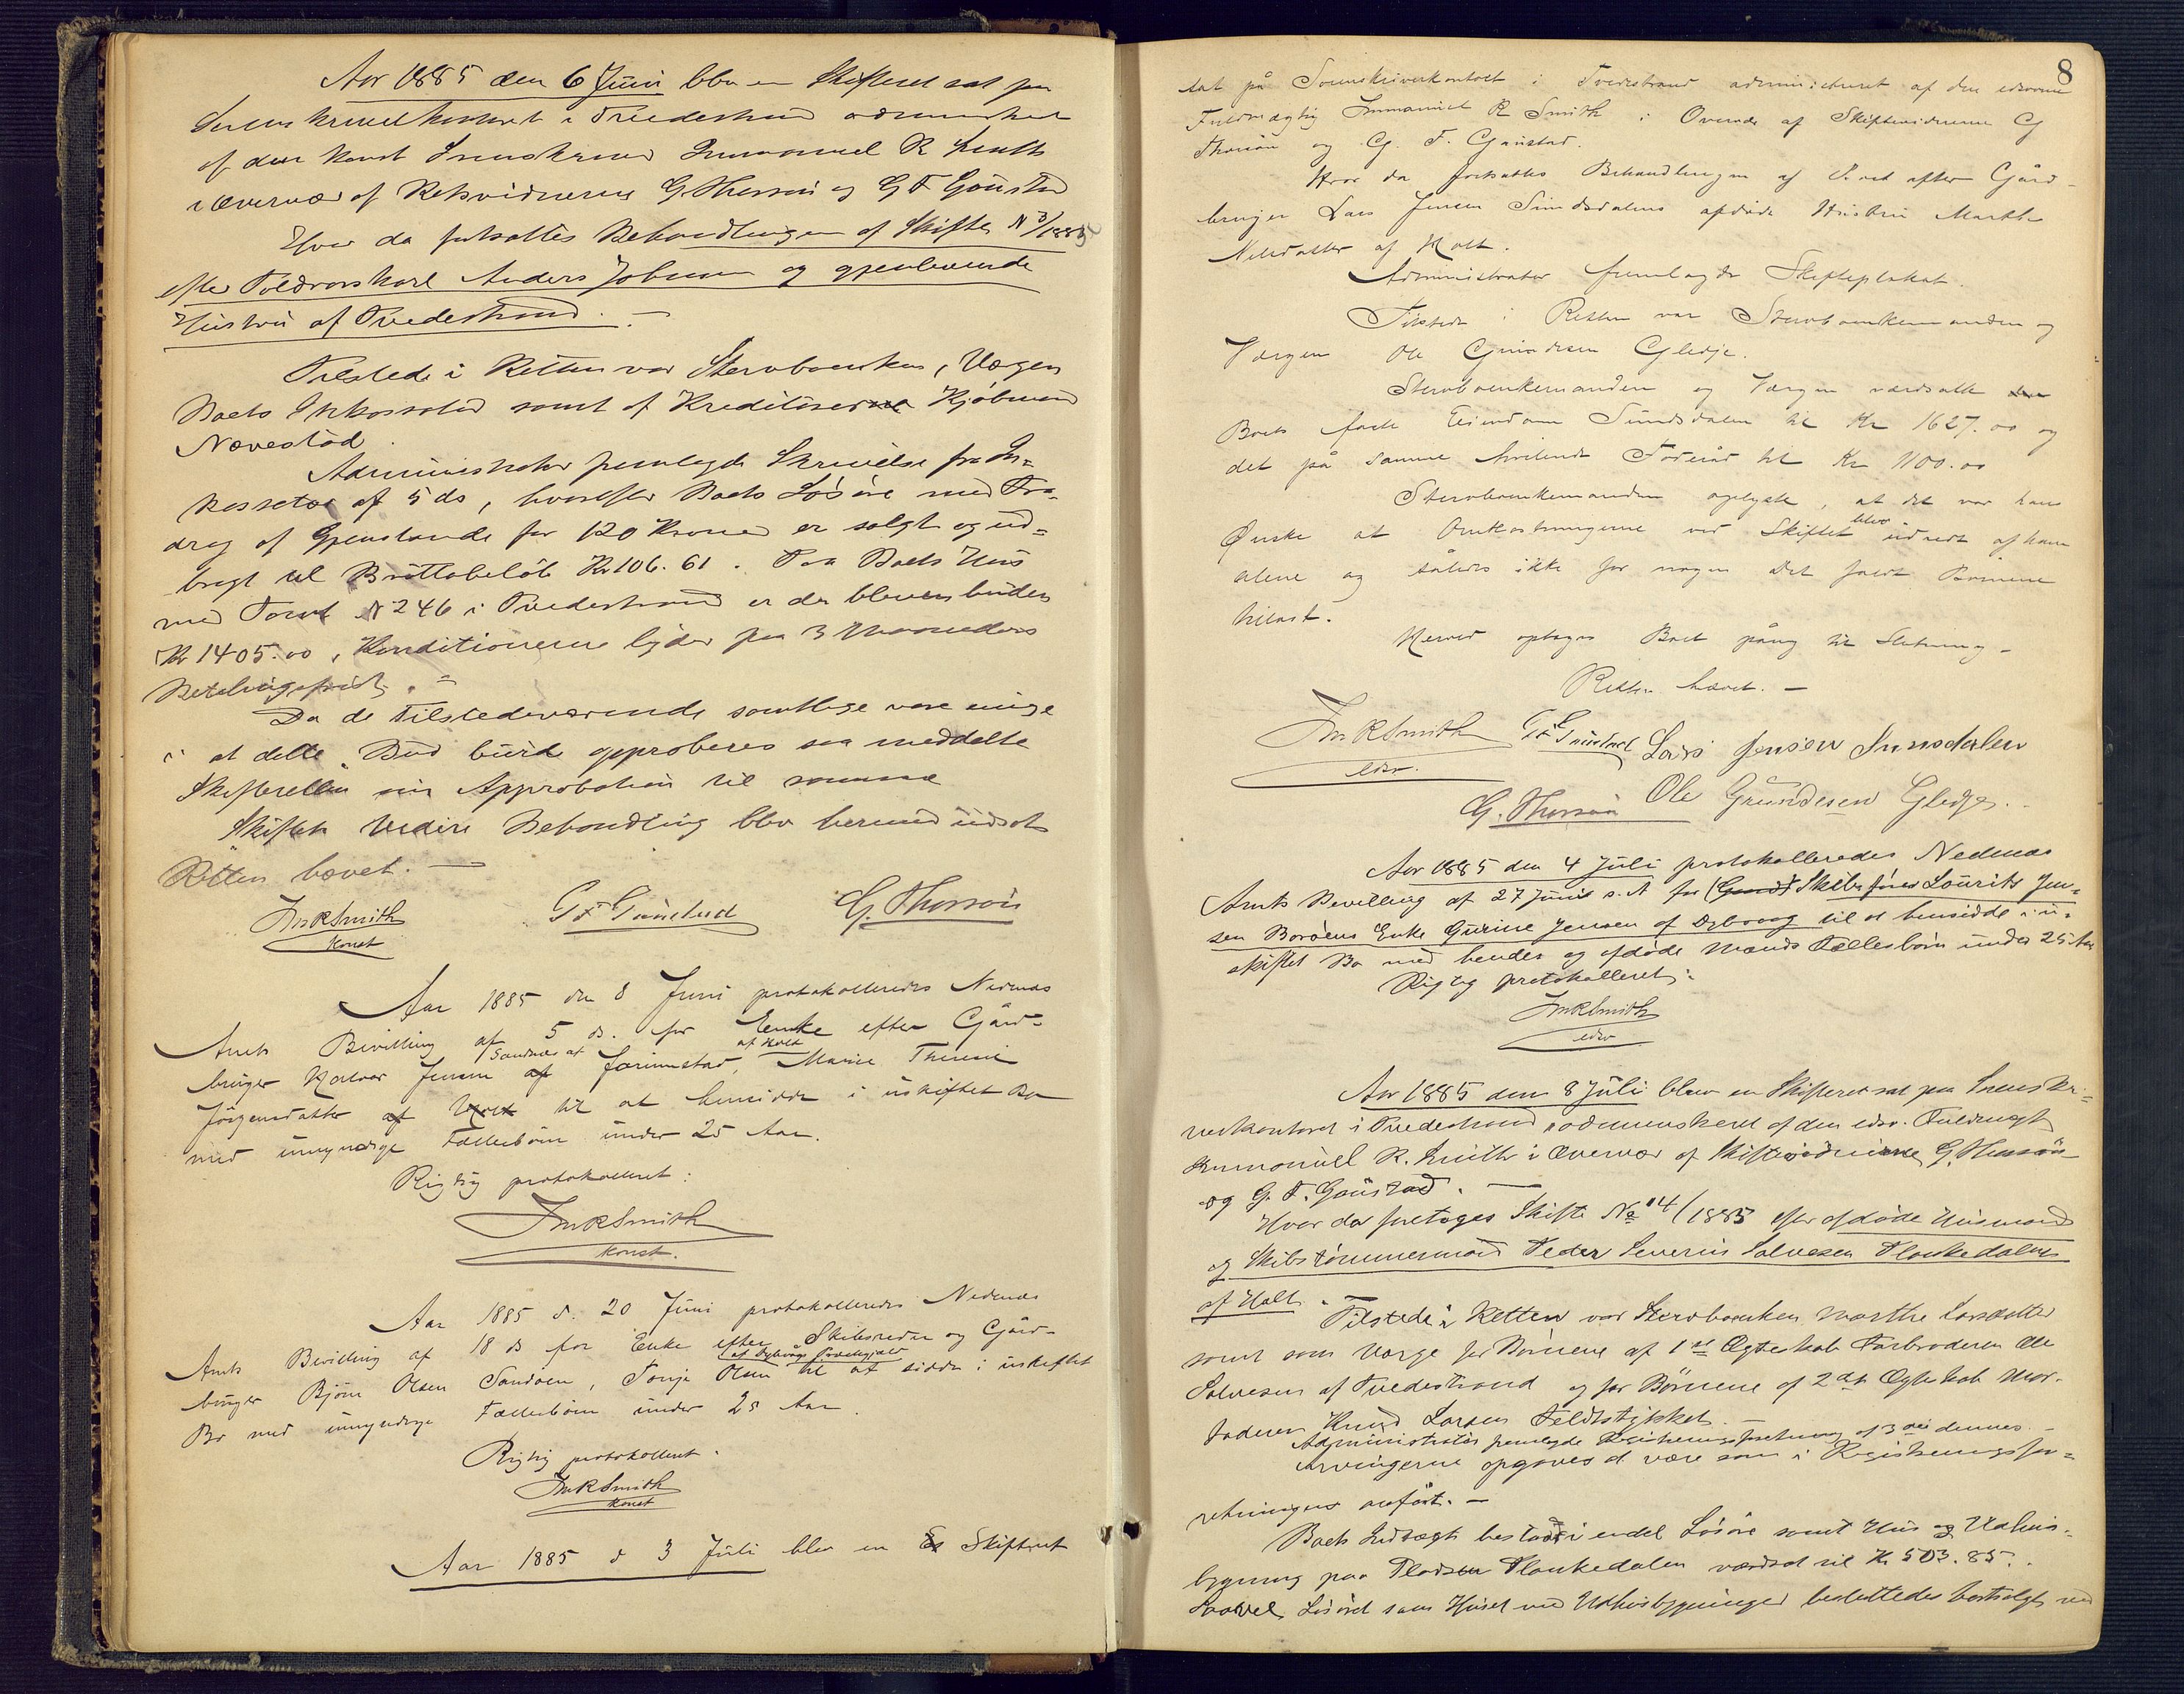 Aar 1885 den 6 Juni blev en Skifteret sat paa
Sorenskriverkontoret i Tvedestrand administreret
af den konst Sorenskriver Immanuel R Smith
i Overvær af Retsvidnerne G. Thorsøn og G F Goustad
Hvor da fortsattes Behandlingen af Skifte N 3/1885
efter Toldrorskarl Anders Johnsen og gjenlevende
Hustru af Tvedestrand. —
Tilstede i Retten var Stervboenken, Værgen
Boets Inkassator samt af Kreditorerne Kjøbmand
Nævestad.
Administrator fremlagde Skrivelse fra In-
kassator af 5 ds, hvorefter Boets Løsøre med Fra-
drag af Gjenstande for 120 Kroner er solgt og ud-
bragt til Bruttobeløb Kr 106.61. Paa Boets Hus
med Tomt N 246 i Tvedestrand er der bleven buden
Kr 1405.00, Konditionerne lyder paa 3 Maaneders
Betalingsfrist. —
Da de Tilstedeværende samtlige vare enige
i at dette Bud burde approberes saa meddelte
Skifteretten sin Approbation til samme
Skiftets videre Behandling blev hermed udsat
Retten hævet. —
ImRSmith G F Goustad G. Thorsøn
konst
Aar 1885 den 8 Juni protokolleredes Nedenæs
Amts Bevilling af 5 ds. for Enke efter Gård-
bruger Halvor Jensen Sandnæs af Farimstad, af Holt Marie Therese
Jørgensdatter af Holt til at hensidde i uskiftet Bo
med umyndige Fællesbørn under 25 Aar.
Rigtig protokolleret:
ImRSmith
konst.
Aar 1885 d. 20 Juni protokolleredes Nedenæs
Amts Bevilling af 18 ds for Enke efter Skibsreder og Gård-
bruger Bjørn Olsen Sandøen, Tonje Olsen af Dybvåg Præstegjæld til at sidde i uskiftet
Bo med umyndige Fællesbørn under 25 Aar.
Rigtig protokolleret.
ImRSmith
konst
Aar 1885 d 3 Juli blev en Skifteret
8
sat på Sorenskriverkontoret i Tvedestrand administreret af den edsvorne
Fuldmægtig Immanuel R Smith i Overvær af Skiftevidnerne G
Thorsøn og G. F. Goustad.
Hvor da fortsattes Behandlingen af Boet efter Gård-
bruger Lars Jensen Sundsdalens afdøde Hustru Marthe
Nilsdatter af Holt.
Administrator fremlagde Skifteplakat.
Tilstede i Retten var Stervboenkemanden og
Værgen Ole Gundersen Gledje.
Stervboenkemanden og Værgen værdsatte den
Boets faste Eiendom Sundsdalen til Kr 1627.00 og
det på samme hvilende Føderåd til Kr 1100.00
Stervboenkemanden oplyste, at det var hans
Ønske at Omkostningerne ved Skiftet blev udredt af ham
alene og således ikke for nogen Del faldt Børnene
tillast.
Herved optoges Boet påny til Slutning —
Retten hævet. —
ImRSmith G F Goustad Lars Jensen Sunsdalen
edsv.
G. Thorsøn Ole Gundersen Gledje.
Aar 1885 den 4 Juli protokolleredes Nedenæs
Amts Bevilling af 27 Junii s. A for Skibsfører Lourits Jen-
sen Borøens Enke Gurine Jensen af Dybvaag til at hensidde i u-
skiftet Bo med hendes og afdøde Mands Fællesbørn under 25 Aar
Rigtig protokolleret:
ImRSmith
edsv
Aar 1885 den 8 Juli blev en Skifteret sat paa Sorenskri-
verkontoret i Tvedestrand administreret af den edsv. Fuldmægt
Immanuel R. Smith i Overvær af Skiftevidnerne G. Thorsøn
og G. F. Goustad. —
Hvor da foretoges Skifte No 14/1885 efter afdøde Husmand
og Skibstømmermand Peder Severin Salvesen Plankedalen
af Holt. —
Tilstede i Retten var Stervboenken Marthe Larsdatter
samt som Værge for Børnene af 1ste Ægteskab Farbroderen Ole
Salvesen af Tvedestrand og for Børnene af 2det Ægteskab Mor-
faderen Knud Larsen Feldtstykket. —
Administrator fremlagde Registreringsforretning af 3die dennes. —
Arvingerne opgaves at være som i Registreringsfor-
retningen anført. —
Boets Indtægt bestaar i endel Løsøre samt Hus og Udhus-
bygning paa Pladsen Plankedalen værdsat til Kr 503.85.
Saavel Løsøret som Huset med Udhusbygninger besluttedes bortsolgt ved